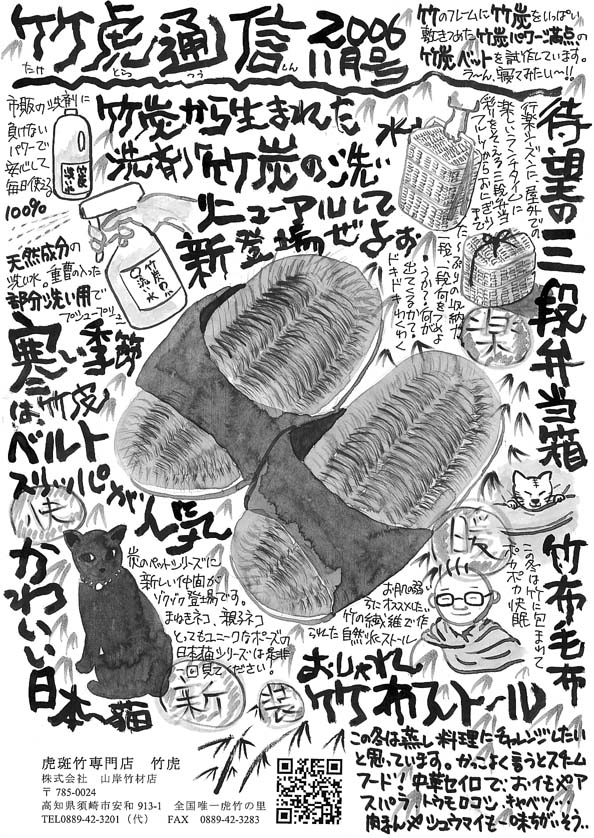 竹虎通信
たけ とら つう しん
2006
11月号
竹のフレームに竹炭をいっぱい
敷きつめた竹炭パワー満点の
竹炭ベットを試作しています。
ラ〜ん、寝てみたい〜!!
市販の洗剤に
負けない
パワーで
安心して
毎日使える
100%
天然成分の
洗い水。重曹の入った
部分洗い用で
竹炭から生まれた
洗剤「竹炭の洗い水」
リニューアルして
新登場ぜよぉ
待望の三段弁当箱
行楽シーズンに、屋外での
楽しいランチタイムに
彩りをそえる三段弁当
た〜っぷりの収納力
一段、二段何をつめよ
うか?何が
出てくるか?
ドキドキわくわく
楽
寒い季節
は、竹皮
ベルト
スリッパが
快
暖
竹布毛布
この冬は竹に包まれて
ポカポカ快眠
かわいい日本猫
炭のペットシリーズに
新しい仲間が
ゾクゾク登場です。
まねきネコ、親子ネコ
とってもユニークなポーズの
日本猫シリーズは是非
一回見てください!
新
お肌の弱い
方にオススメな
竹の繊維で作
られた自然派ストール
おしゃれな
竹布ストール
この冬は蒸し料理にチャレンジしたい
と思っています。かっこよく言うとスチーム
フード!中華セイロで、おイモやア
スパラ、トウモロコシ、キャベツ…
肉まんやシュウマイも一味ちがいそう..
虎斑竹専門店 竹虎
株式会社 山岸竹材店
〒785-0024
高知県須崎市安和 913-1 全国唯一虎竹の里
TEL0889-42-3201(代) FAX 0889-42-3283